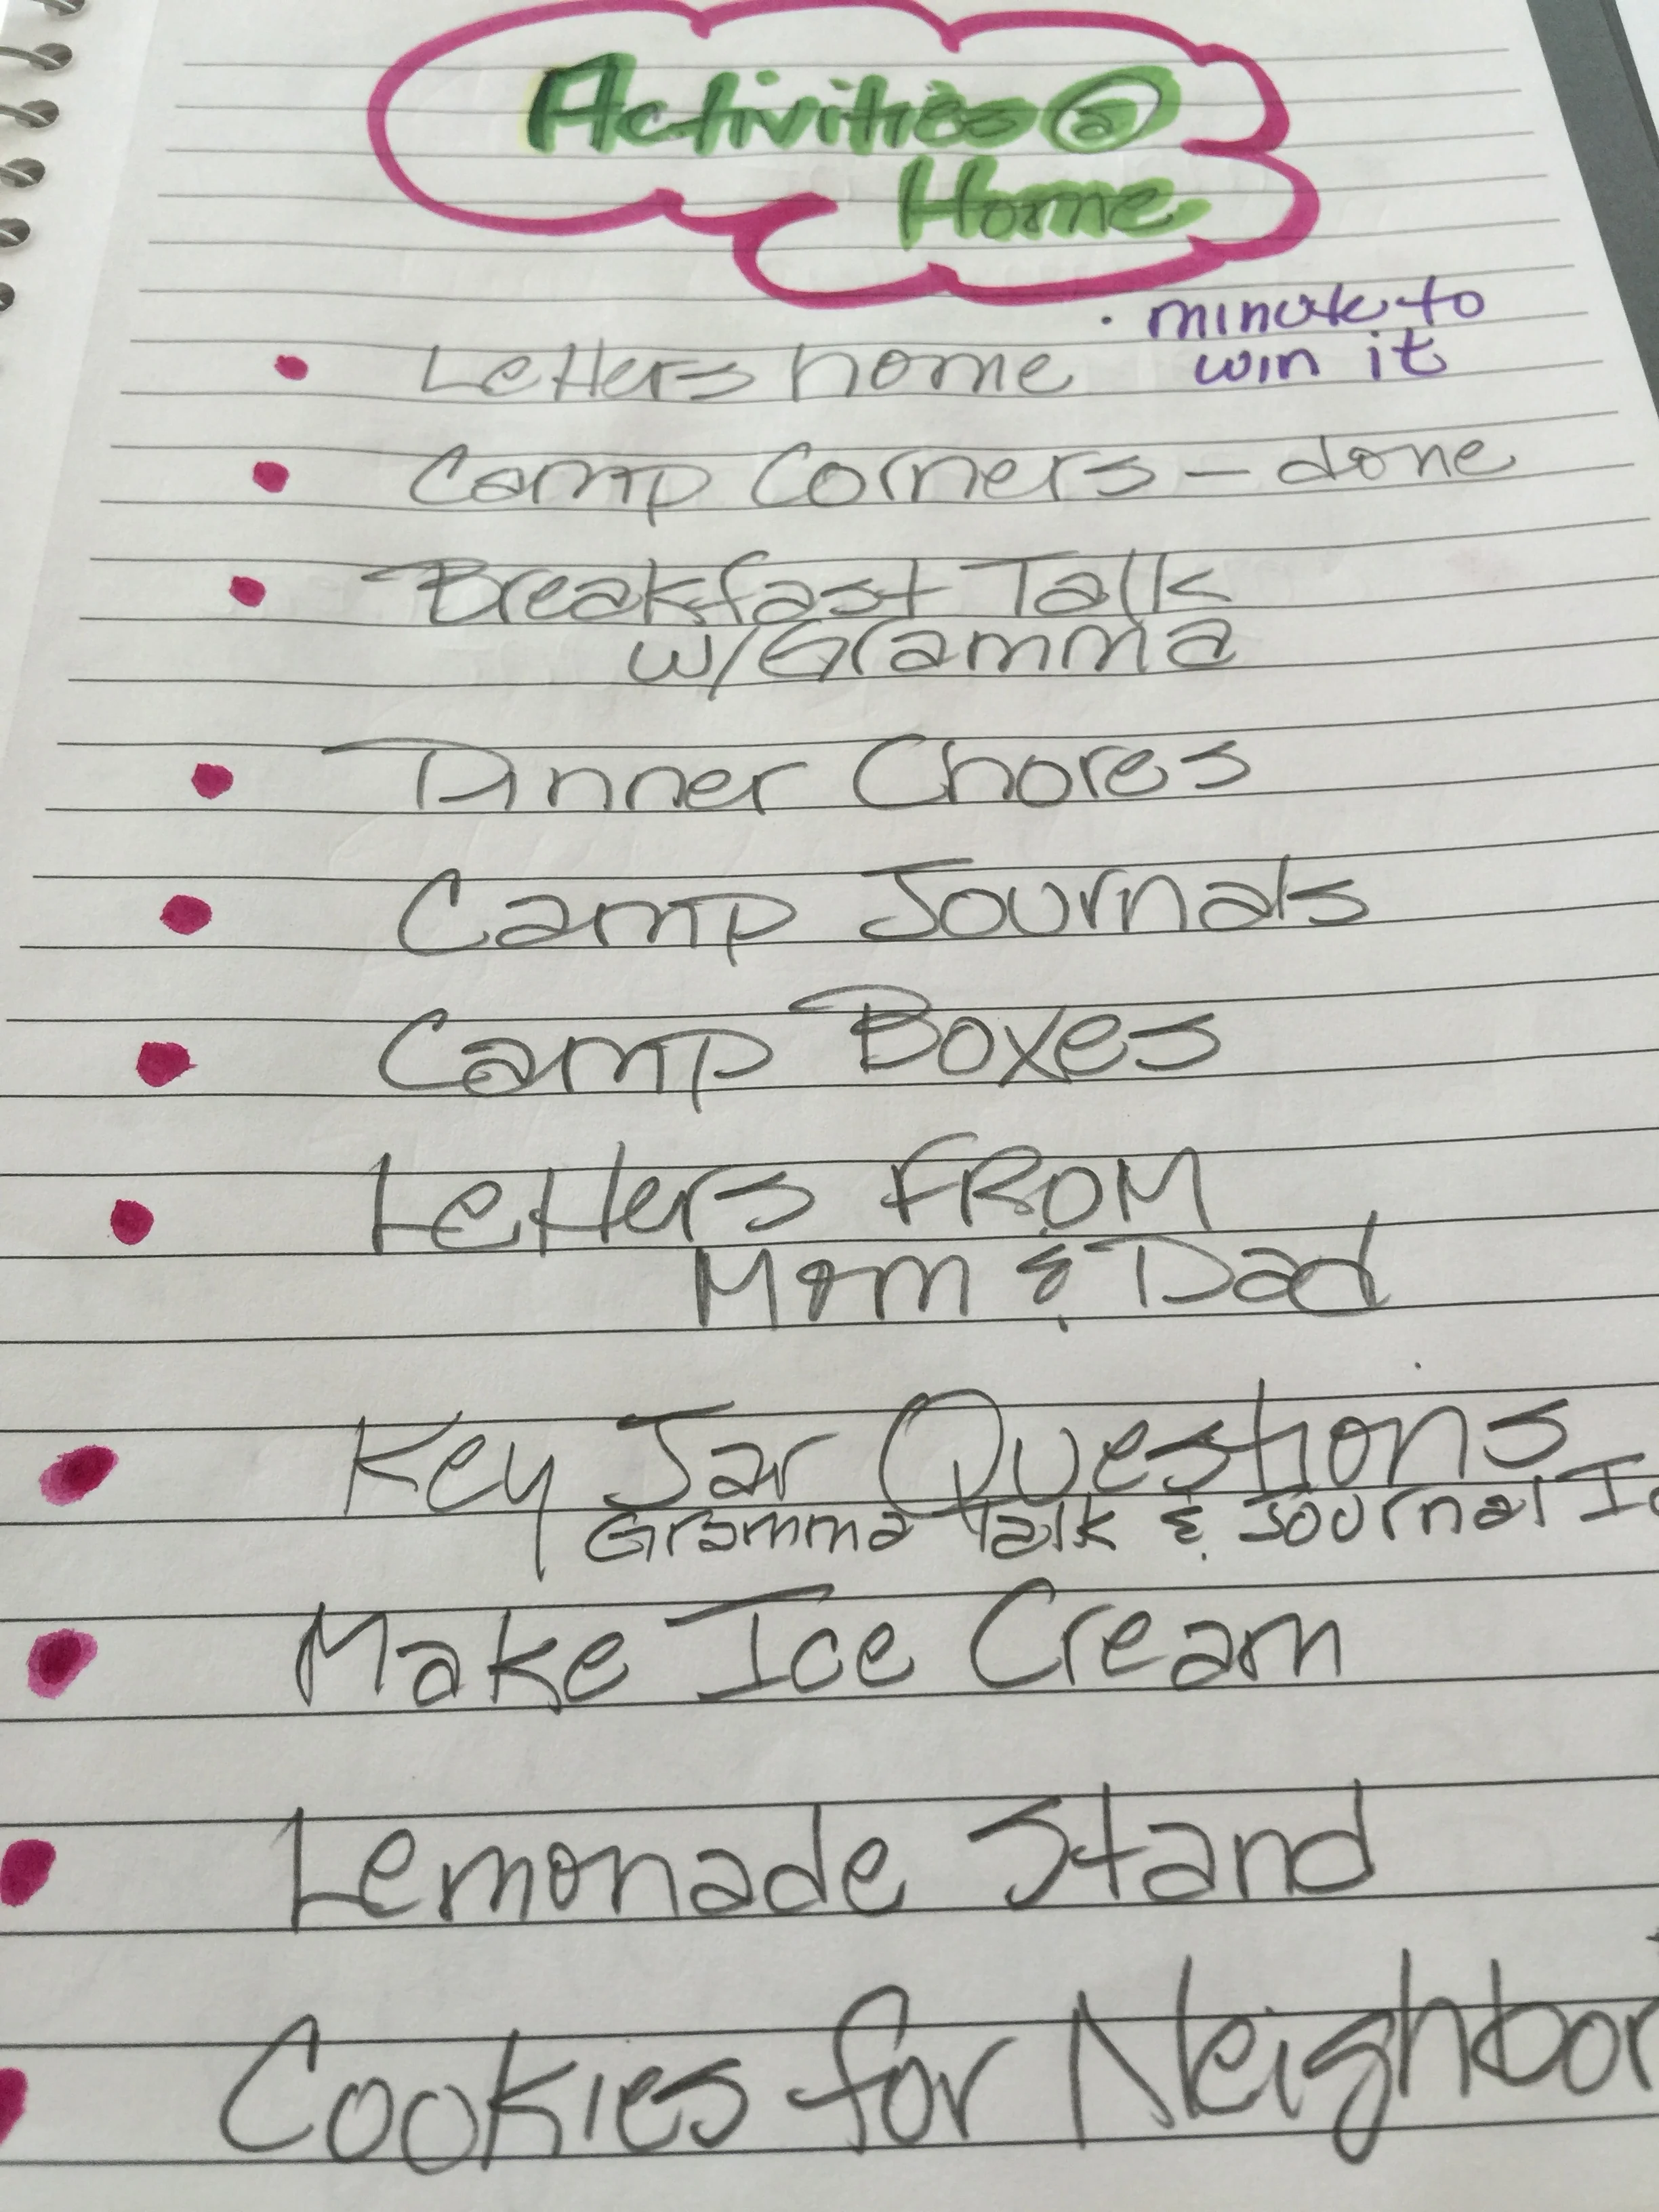 Activities @
Home
• minute to
win it
• Letters home
• Camp Corners - done
• Breakfast Talk
w/Gramma
• Dinner Chores
• Camp Journals
• Camp Boxes
• Letters FROM
Mom & Dad
• Key Jar Questions
Gramma Talk & Journal
• Make Ice Cream
• Lemonade Stand
• Cookies for Neighbor